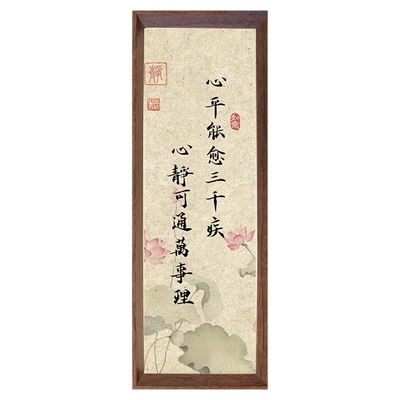 心平能愈三千疾
心靜可通萬事理
靜